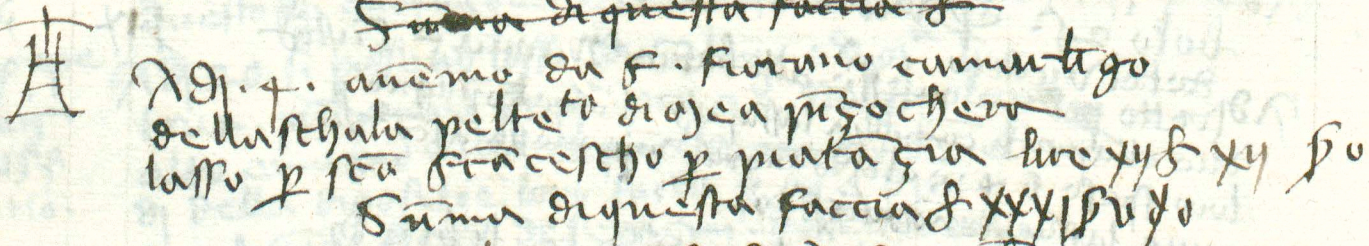 Suma di questa faccia f
A dj. 4. avemo da f. fiorano camarlīgo
della schala pel te to di mea pīzochera
lasso p sco frācescho p piatāzia lire xij f xij
Suma di questa faccia f xxxj